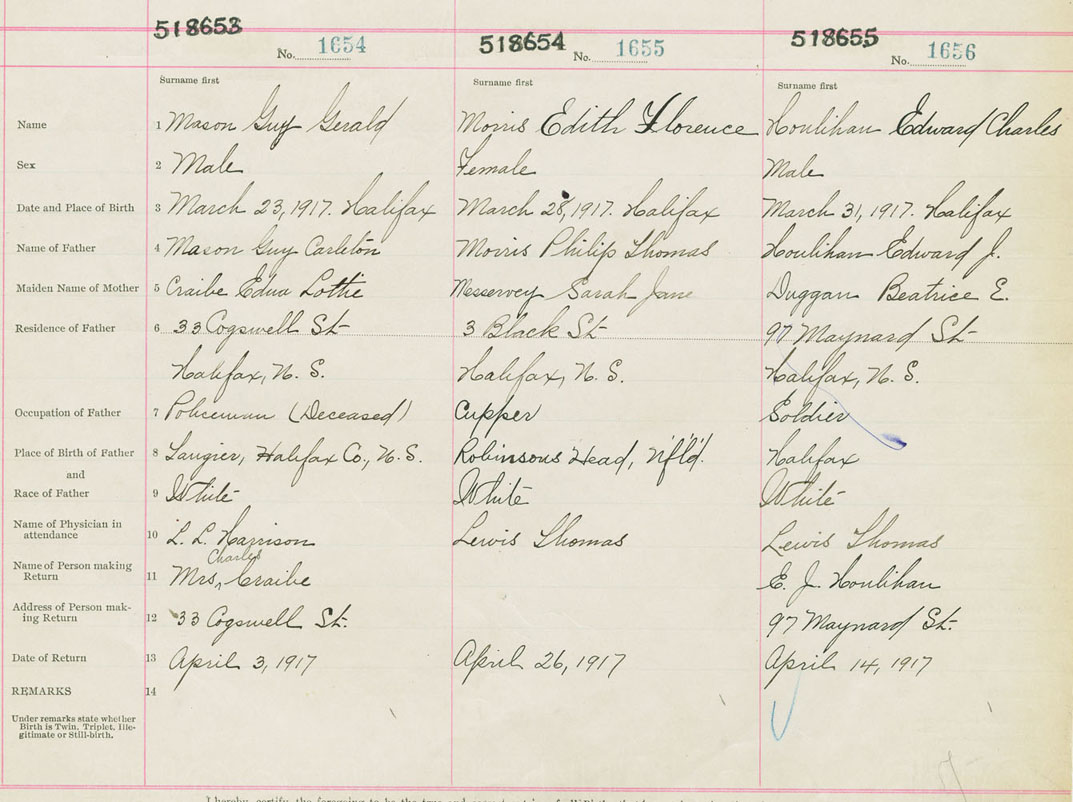 518653 518654 518655
No. 1654 No. 1655 No. 1656
Surname first Surname first Surname first
Name 1 Mason Guy Gerald Morris Edith Florence Houlihan Edward Charles
Sex 2 Male Female Male
Date and Place of Birth 3 March 23, 1917. Halifax March 28, 1917. Halifax March 31, 1917. Halifax
Name of Father 4 Mason Guy Carleton Morris Philip Thomas Houlihan Edward J.
Maiden Name of Mother 5 Craibe Edna Lottie Messervey Sarah Jane Duggan Beatrice E.
Residence of Father 6 33 Cogswell St 3 Black St 97 Maynard St
Halifax, N. S. Halifax, N. S. Halifax, N. S.
Occupation of Father 7 Policeman (Deceased) Cupper Soldier
Place of Birth of Father 8 Halifax Co., N. S. Robinsons Head, Nfld. Halifax
and
Race of Father 9 White White White
Name of Physician in
attendance 10 L. L. Harrison Lewis Thomas Lewis Thomas
Charles
Name of Person making
Return 11 Mrs, Craibe E. J. Houlihan
Address of Person mak-
ing Return 12 33 Cogswell St. 97 Maynard St.
Date of Return 13 April 3, 1917 April 26, 1917 April 14, 1917
REMARKS 14
Under remarks state whether
Birth is Twin, Triplet, Ille-
gitimate or Still-birth.
I hereby certify the foregoing to be the true and